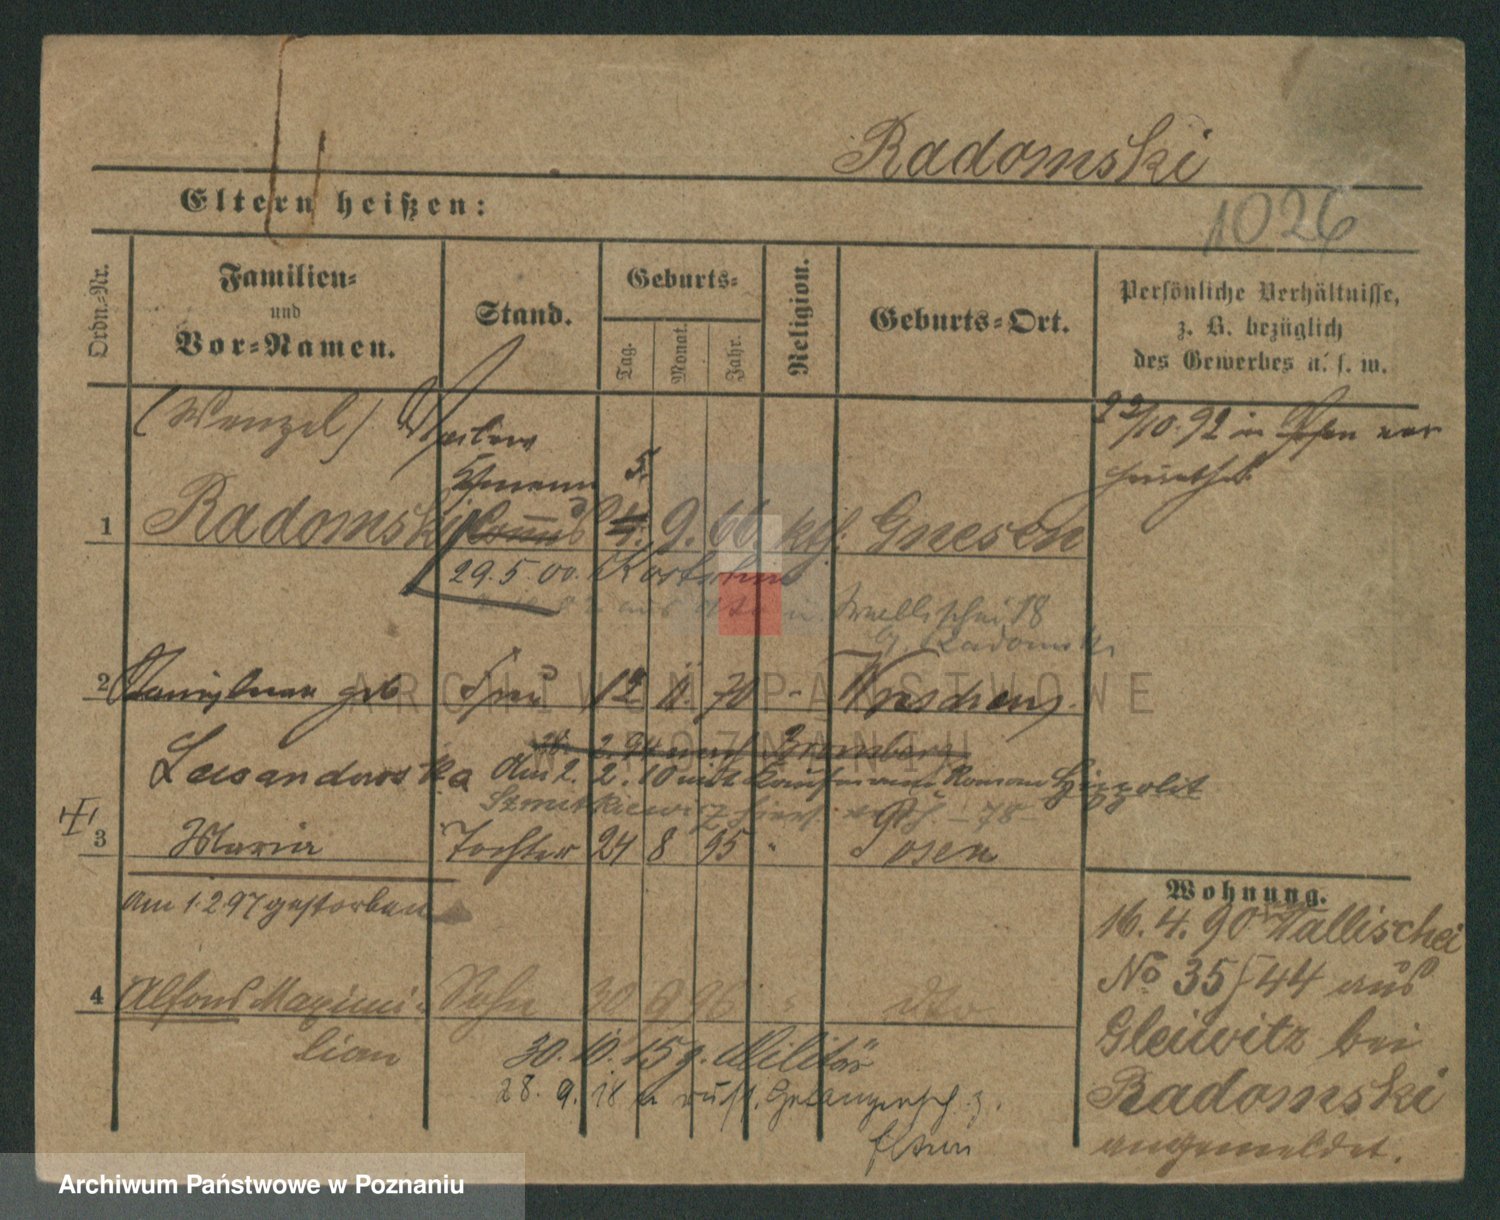 Radomski
Eltern heißen:
1026
Ordn.-Nr.
Familien-
und
Vor-Namen.
Stand.
Geburts-
Tag.
Monat.
Jahr.
Religion.
Geburts-Ort.
Persönliche Verhältnisse,
z. B. bezüglich
des Gewerbes u. s. w.
(Wenzel)
22/10.92 in Posen ver
heirathet
5.
1 Radomski 4. 9. 66. kth. Gnesen
29.5.00. Kostschin
Radomski
2 geb Frau 12 11. 70 - Wreschen
2. 94 nach Bromberg
Lewandowska Am 2. 2. 10 mit Kaufmann Roman Hippolit
3 Maria Tochter 24 8 95 " Posen
Am 1.2.97 gestorben
Wohnung.
16. 4. 90 Wallischei
No 35/44 aus
Gleiwitz bei
Radomski
angemeldet.
4 Alfons Maximi- Sohn 30 9 96 " dto
lian
30. 10. 15 z. Militär
28. 9. 18 a russ. z.
Eltern
ARCHIWUM PAŃSTWOWE
W POZNANIU
Archiwum Państwowe w Poznaniu